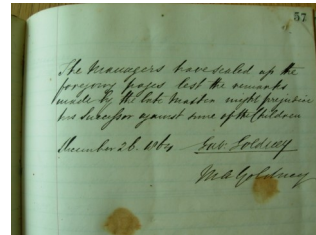 57
The Managers have sealed up the
foregoing pages lest the remarks
made by the late Master might prejudice
his successor against some of the Children
December 26. 1864 Gab. Goldney
M A Goldney